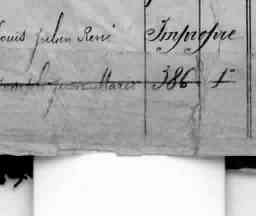 ouis julien René Impropre
Jean Marie 386 1